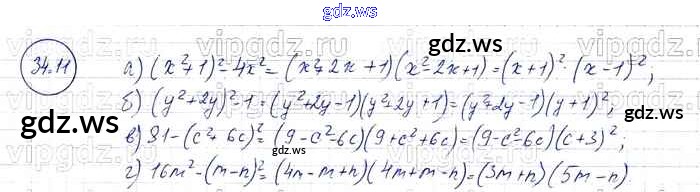 gdz.ws
34.11
а) (x²+1)²-4x² = (x²+2x+1)(x²-2x+1) = (x+1)²·(x-1)²;
б) (y²+2y)²-1 = (y²+2y-1)(y²+2y+1) = (y²+2y-1)(y+1)²;
в) 81-(c²+6c)² = (9-c²-6c)(9+c²+6c) = (9-c²-6c)(c+3)²;
г) 16m²-(m-n)² = (4m-m+n)(4m+m-n) = (3m+n)(5m-n).
gdz.ws